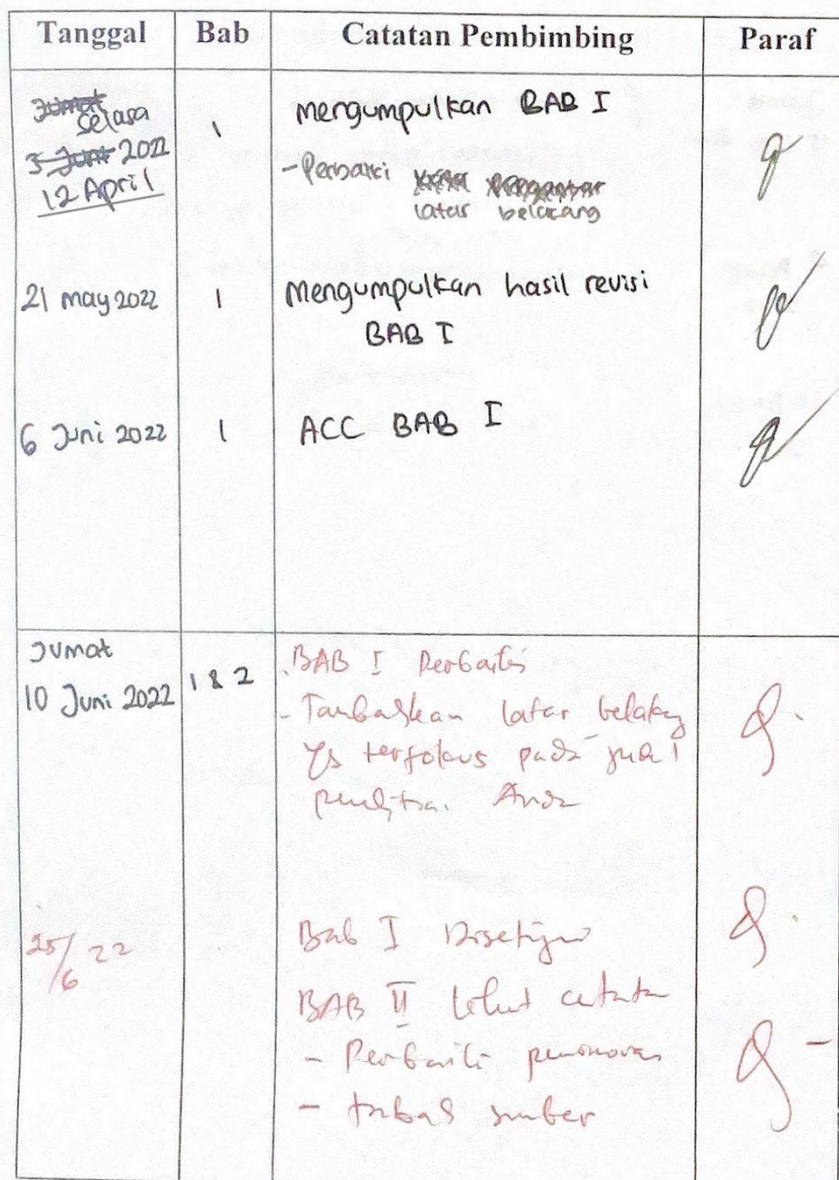 Tanggal Bab Catatan Pembimbing Paraf
Jumat
Selasa 1 mengumpulkan BAB I
3 Juni 2022
12 April
- Perbaiki
latar belakang
21 may 2022 1 Mengumpulkan hasil revisi
BAB I
6 Juni 2022 1 ACC BAB I
Jumat
10 Juni 2022 1 & 2 BAB I Perbaiki
- Tambahkan latar belakang
yg terfokus pada judul
penelitian Anda
25/6 22 Bab I Disetujui
BAB II lihat catatan
- Perbaiki penomoran
- tambah sumber